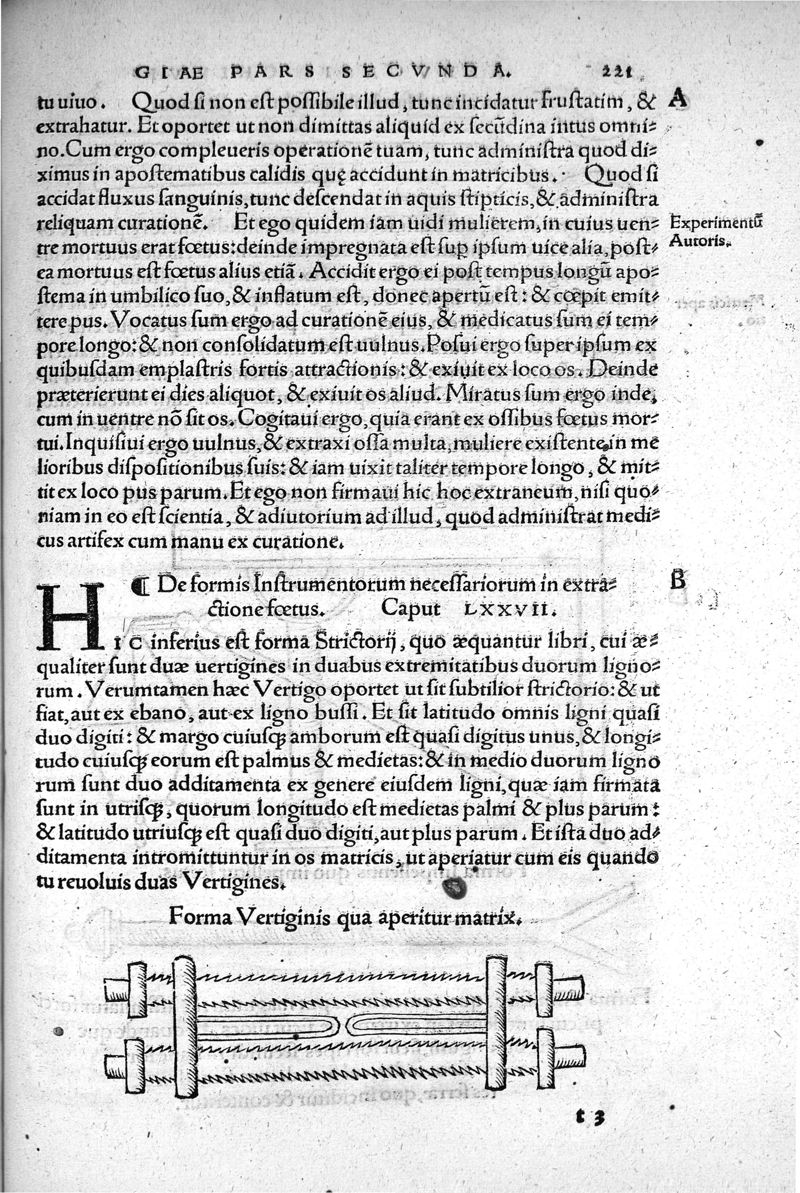 GIAE PARS SECVNDA. 221
tu uiuo. Quod si non est possibile illud, tunc incidatur frustatim, & A
extrahatur. Et oportet ut non dimittas aliquid ex secũdina intus omni-
no. Cum ergo compleueris operationẽ tuam, tunc administra quod di-
ximus in apostematibus calidis quę accidunt in matricibus. Quod si
accidat fluxus sanguinis, tunc descendat in aquis stipticis, & administra
reliquam curationẽ. Et ego quidem iam uidi mulierem, in cuius uen-
Experimentũ
Autoris.
tre mortuus erat fœtus: deinde impregnata est sup ipsum uice alia, post-
ea mortuus est fœtus alius etiã. Accidit ergo ei post tempus longũ apo-
stema in umbilico suo, & inflatum est, donec apertũ est: & cœpit emit-
tere pus. Vocatus sum ergo ad curationẽ eius, & medicatus sum ei tem-
pore longo: & non consolidatum est uulnus. Posui ergo super ipsum ex
quibusdam emplastris fortis attractionis: & exiuit ex loco os. Deinde
præterierunt ei dies aliquot, & exiuit os aliud. Miratus sum ergo inde,
cum in uentre nõ sit os. Cogitaui ergo, quia erant ex ossibus fœtus mor-
tui. Inquisiui ergo uulnus, & extraxi ossa multa, muliere existente in me
lioribus dispositionibus suis: & iam uixit taliter tempore longo, & mit-
tit ex loco pus parum. Et ego non firmaui hic hoc extraneum, nisi quo-
niam in eo est scientia, & adiutorium ad illud, quod administrat medi-
cus artifex cum manu ex curatione.
¶ De formis Instrumentorum necessariorum in extra- B
ctione fœtus. Caput LXXVII.
HIC inferius est forma Strictorij, quo æquantur libri, cui æ-
qualiter sunt duæ uertigines in duabus extremitatibus duorum ligno-
rum. Verumtamen hæc Vertigo oportet ut sit subtilior strictorio: & ut
fiat, aut ex ebano, aut ex ligno bussi. Et sit latitudo omnis ligni quasi
duo digiti: & margo cuiusq́; amborum est quasi digitus unus, & longi-
tudo cuiusq́; eorum est palmus & medietas: & in medio duorum ligno
rum sunt duo additamenta ex genere eiusdem ligni, quæ iam firmata
sunt in utrisq́;, quorum longitudo est medietas palmi & plus parum:
& latitudo utriusq́; est quasi duo digiti, aut plus parum. Et ista duo ad-
ditamenta intromittuntur in os matricis, ut aperiatur cum eis quando
tu reuoluis duas Vertigines.
Forma Vertiginis qua aperitur matrix.
t 3